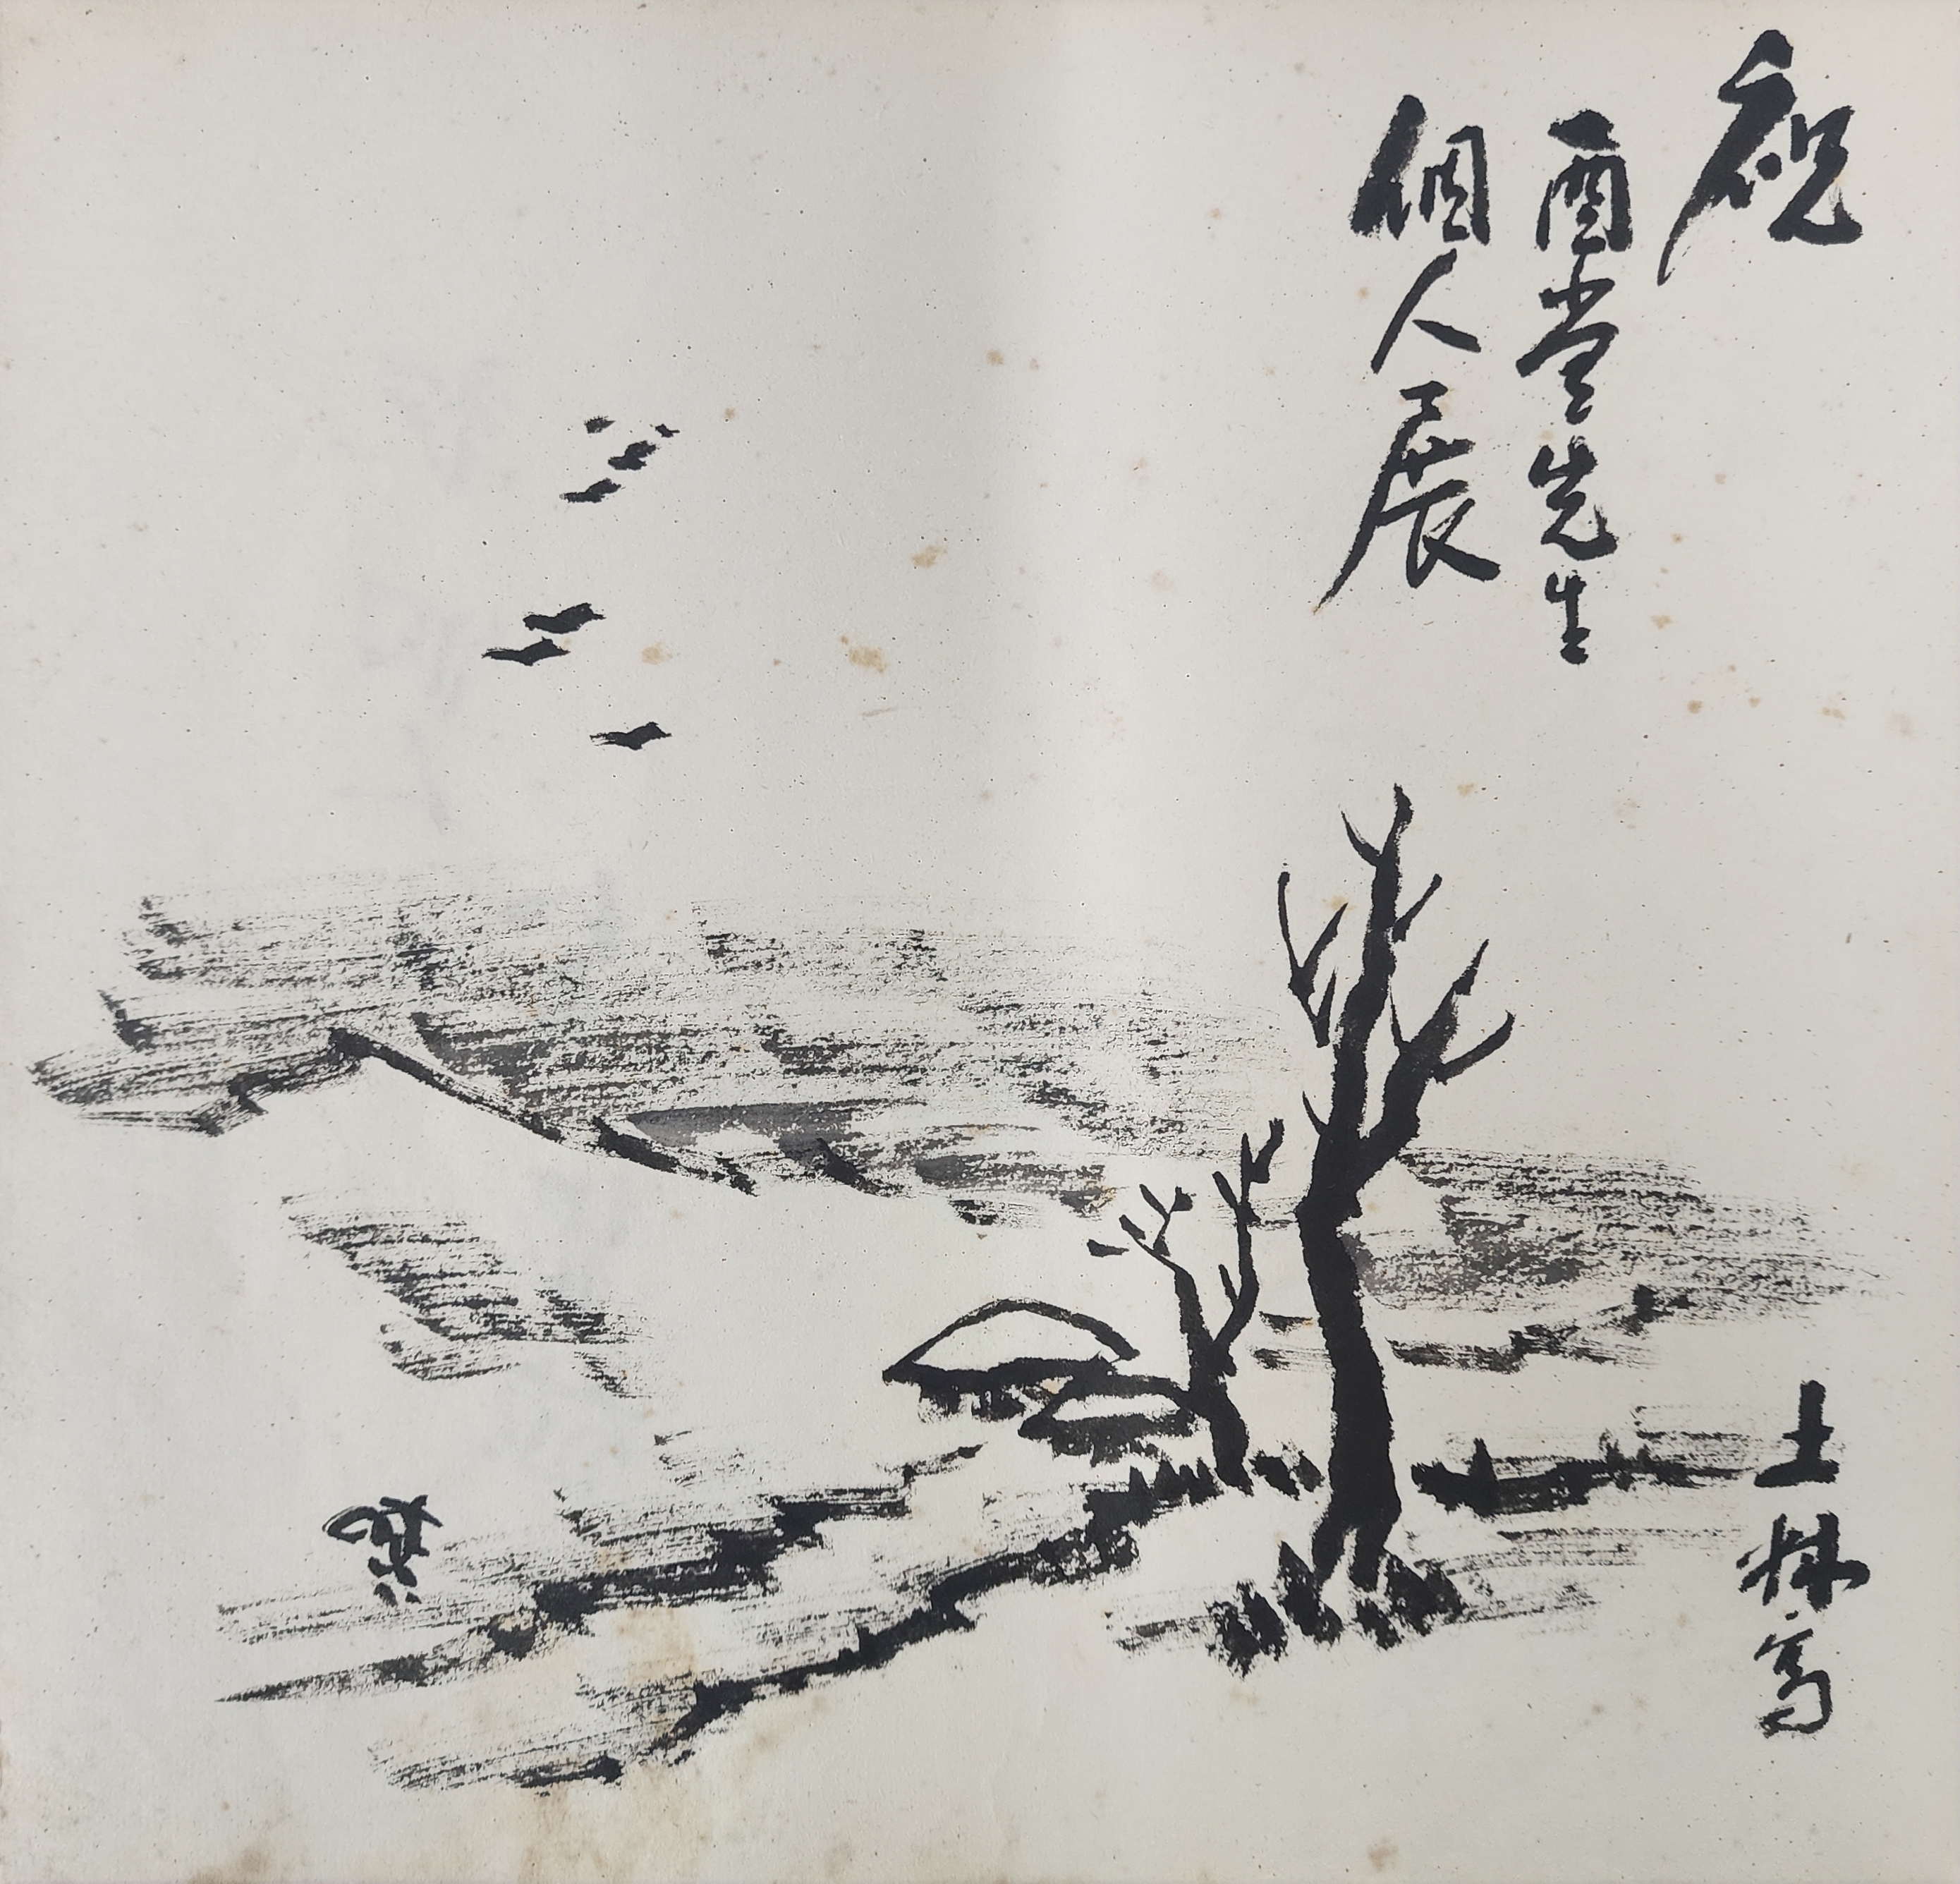 祝
酉堂先生
個人展
土林寫